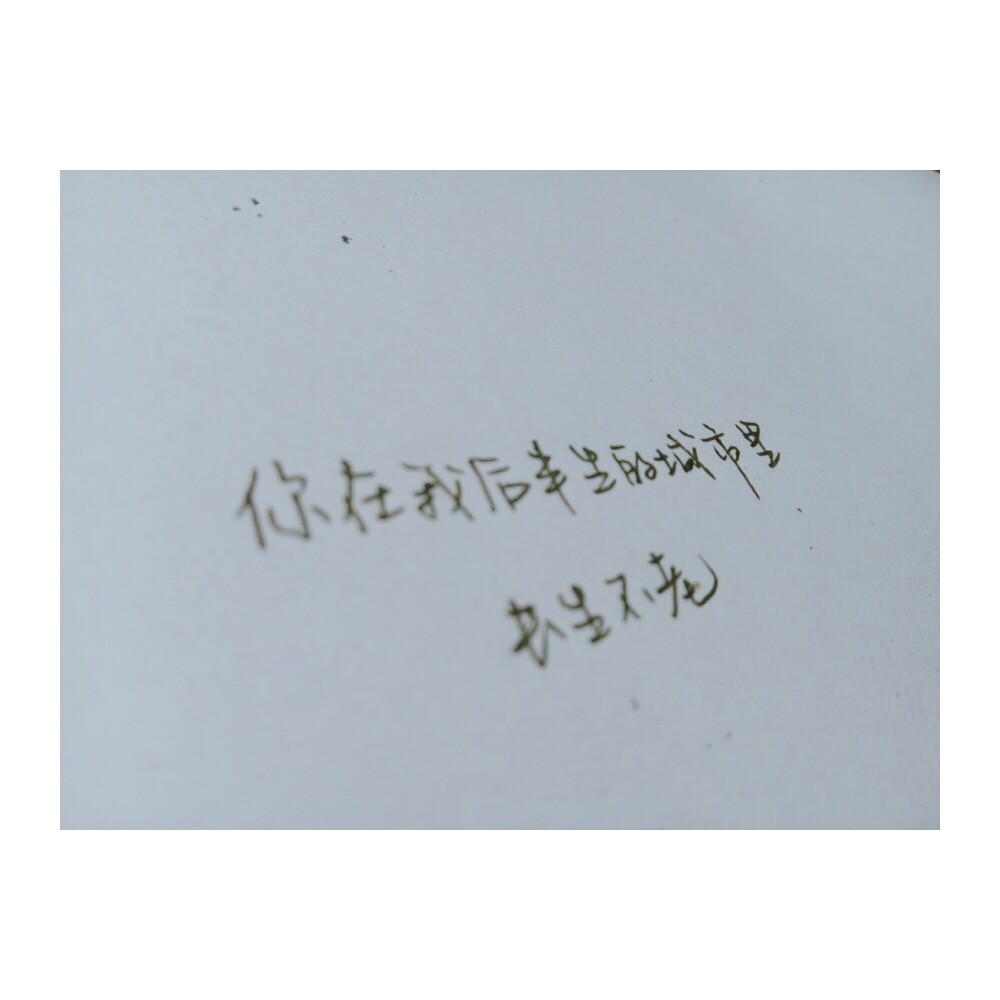 你在我后半生的城市里
长生不老